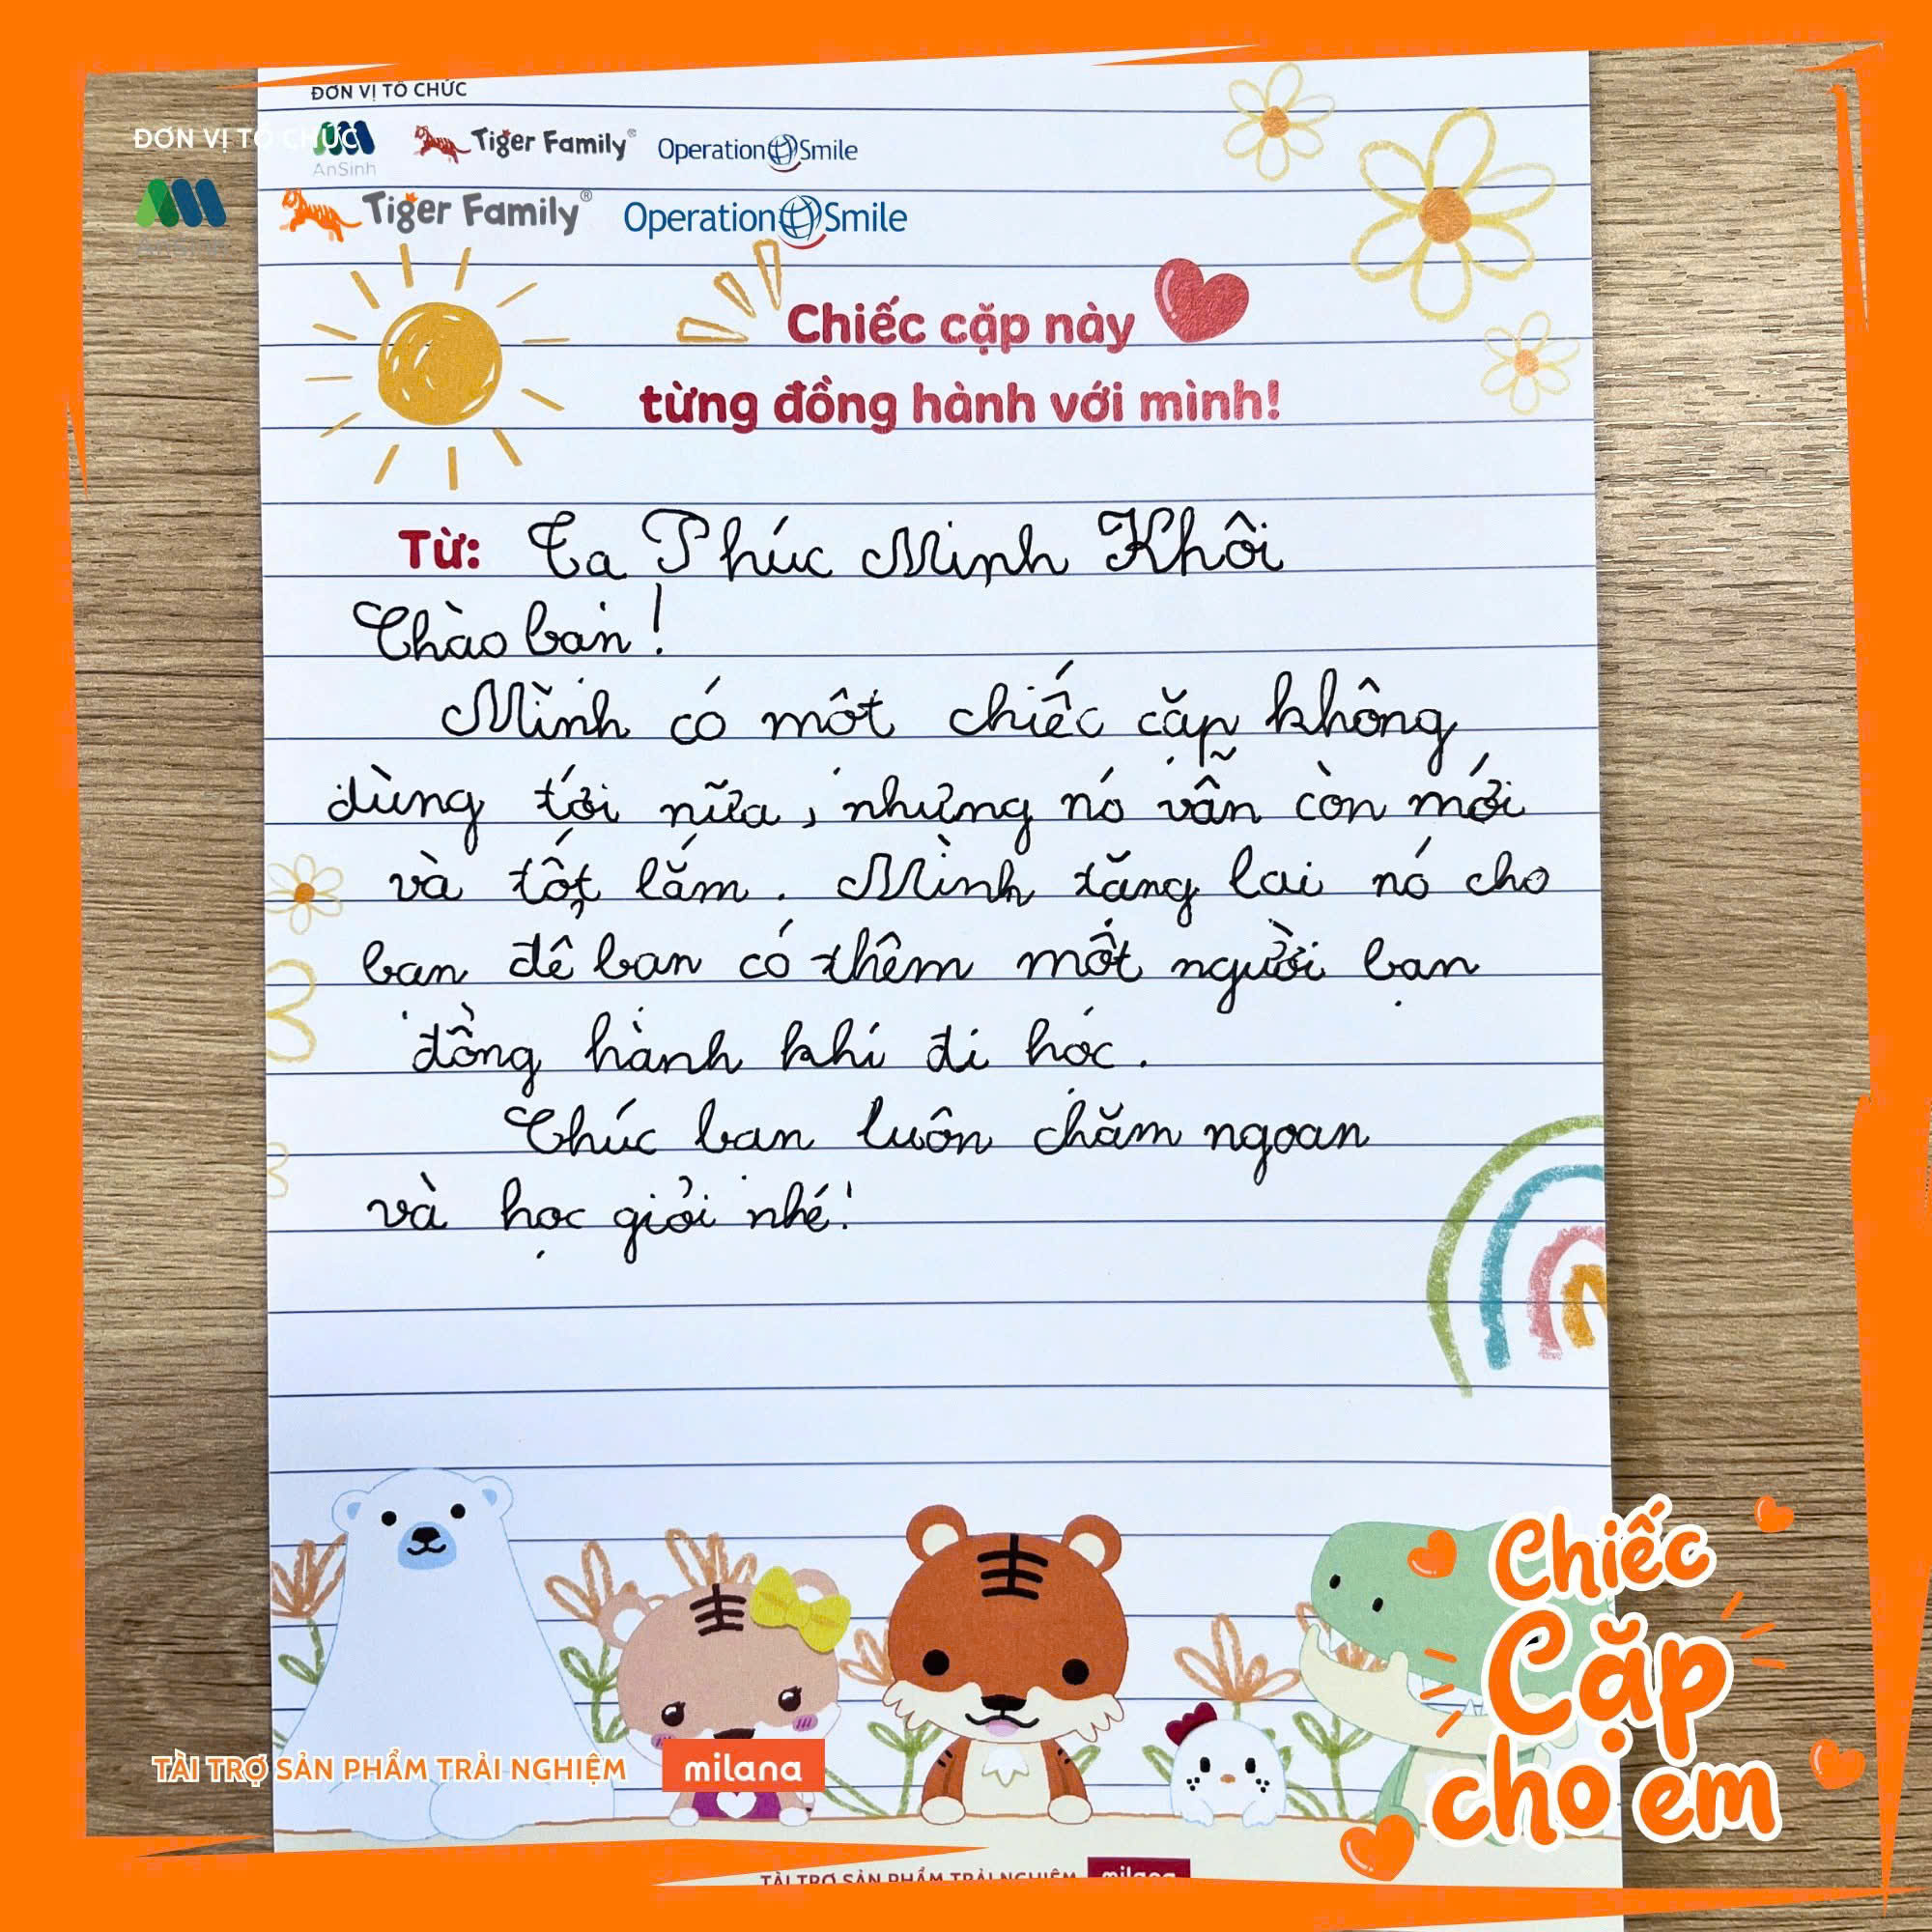 ĐƠN VỊ TỔ CHỨC
ĐƠN VỊ TỔ CHỨC
AnSinh Tiger Family® Operation Smile
AnSinh Tiger Family® Operation Smile
Chiếc cặp này
từng đồng hành với mình!
Từ: Tạ Phúc Minh Khôi
Chào bạn!
Mình có một chiếc cặp không
dùng tới nữa, nhưng nó vẫn còn mới
và tốt lắm. Mình tặng lại nó cho
bạn để bạn có thêm một người bạn
đồng hành khi đi học.
Chúc bạn luôn chăm ngoan
và học giỏi nhé!
Chiếc
Cặp
cho em
TÀI TRỢ SẢN PHẨM TRẢI NGHIỆM milana
TÀI TRỢ SẢN PHẨM TRẢI NGHIỆM milana